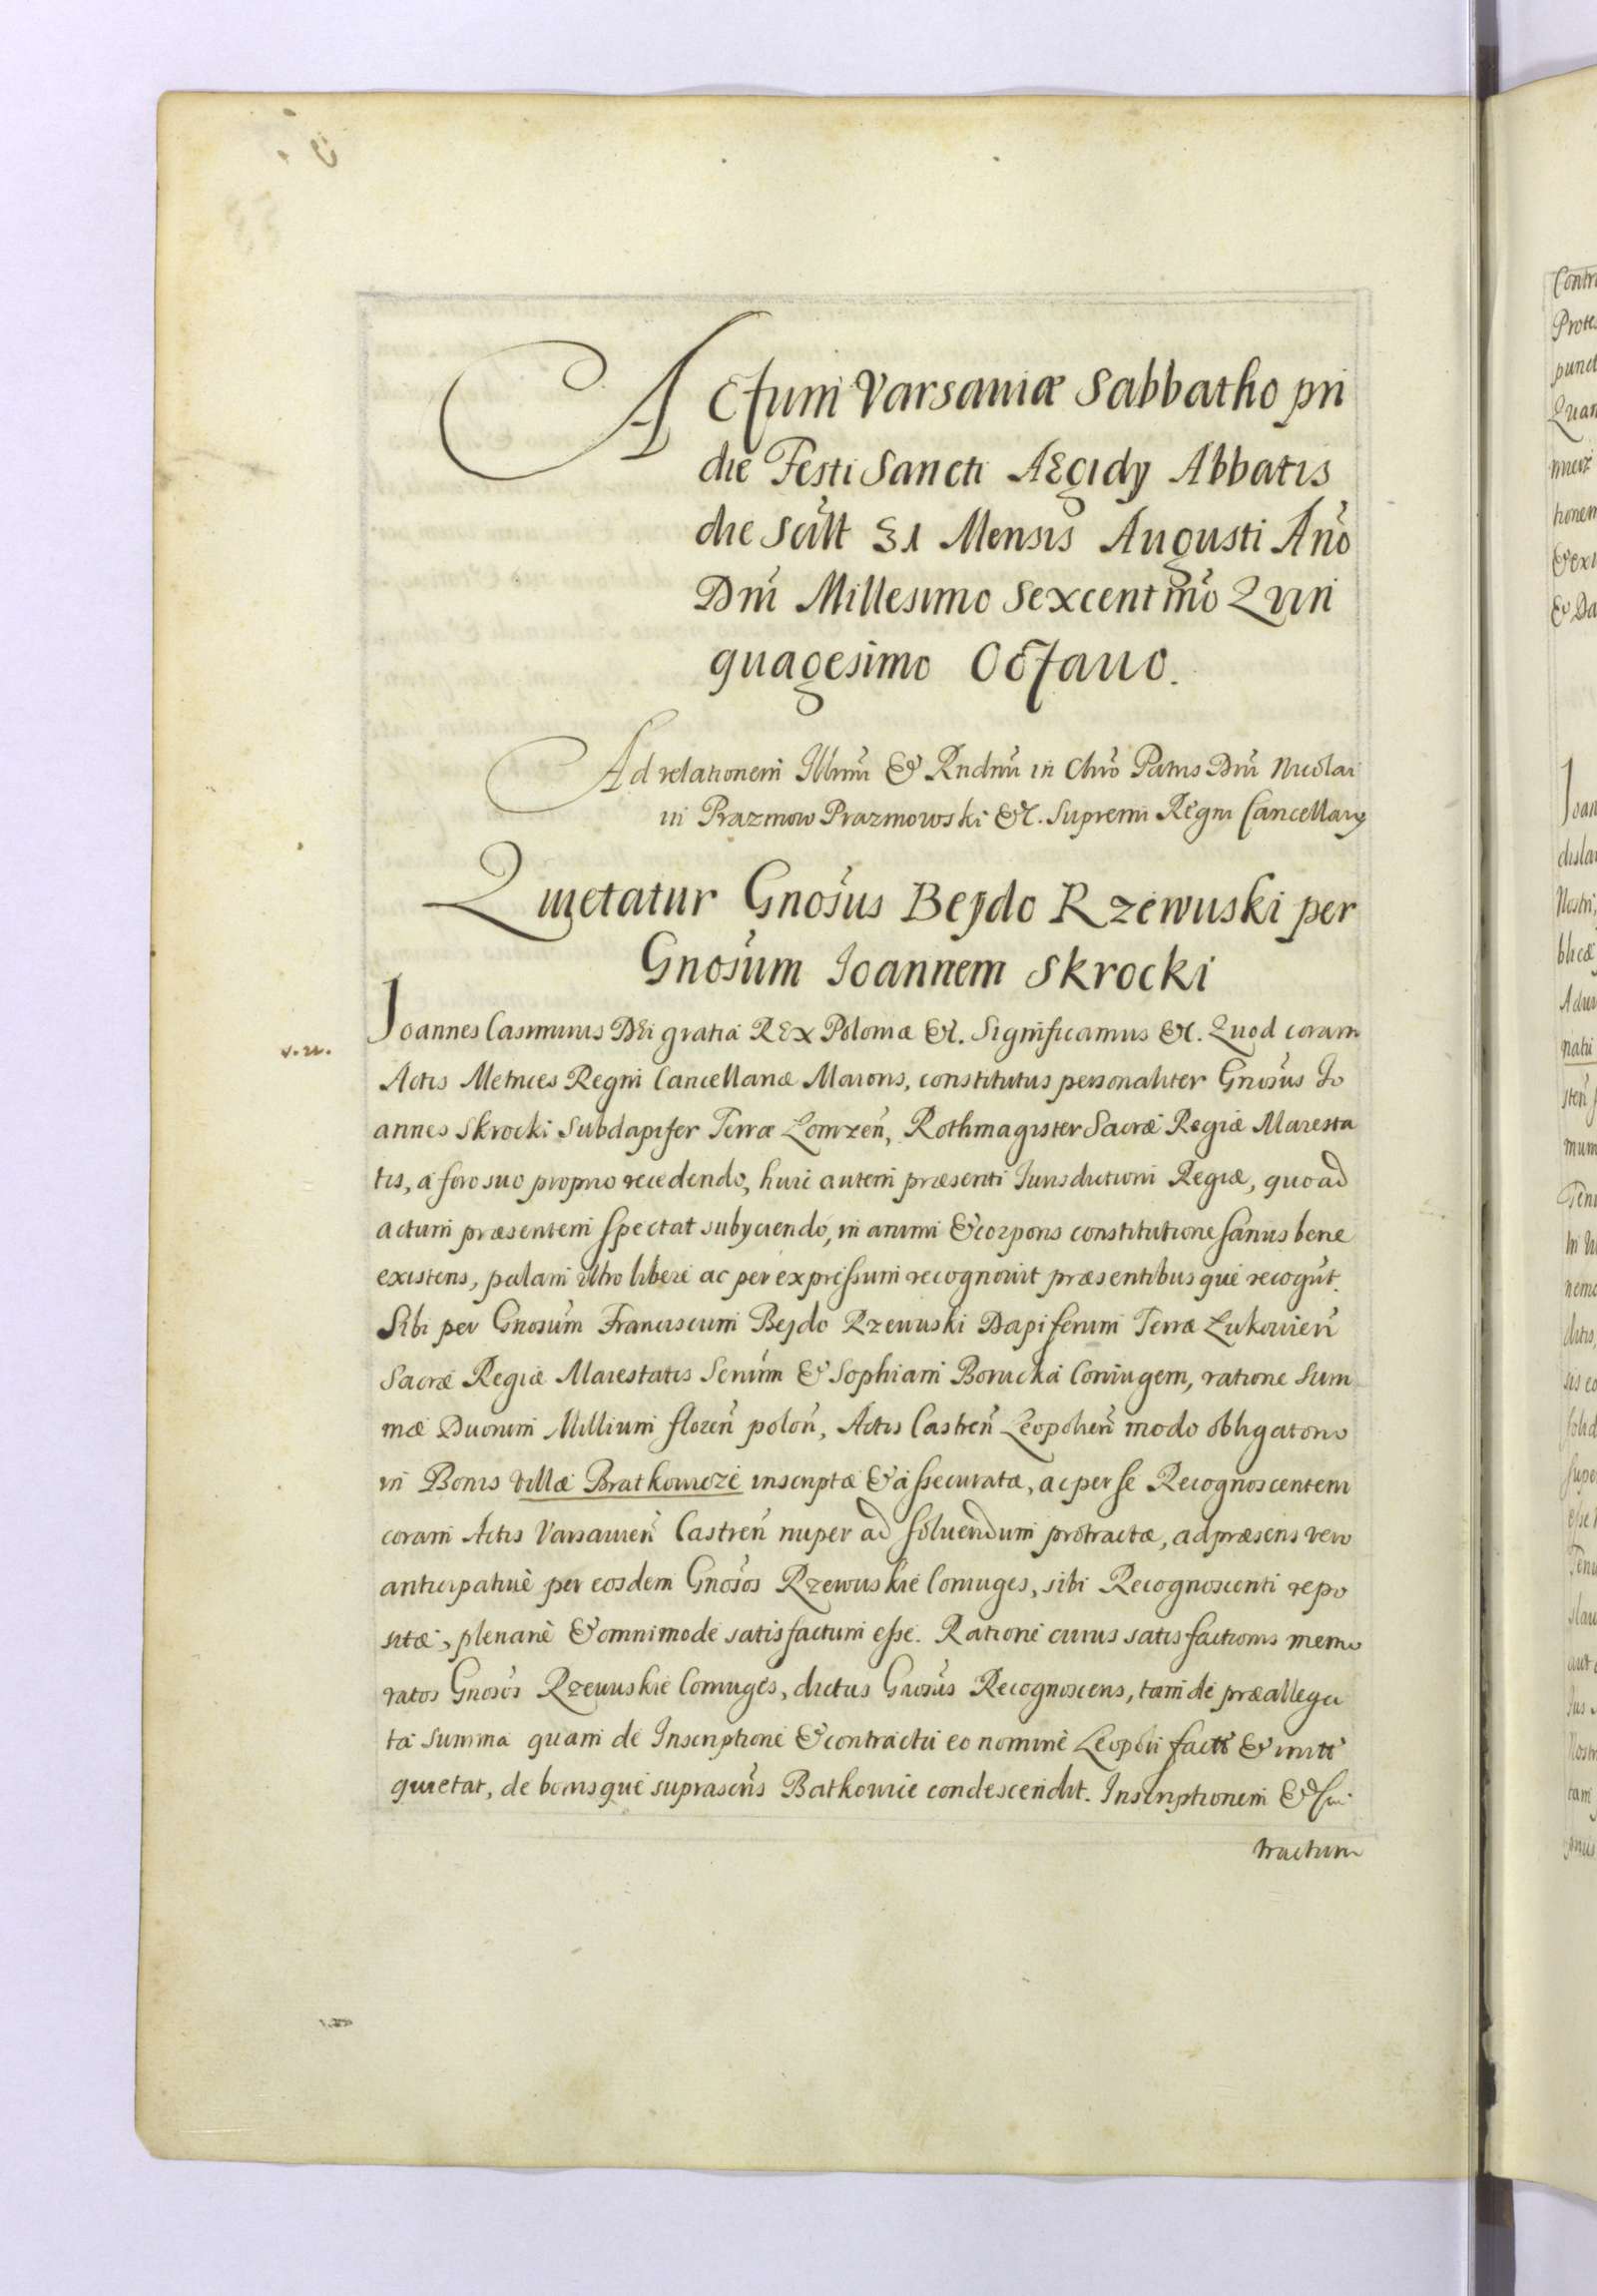 Actum Varsauiæ Sabbatho pri
die Festi Sancti AEgidy Abbatis
die scilt 31 Mensis Augusti Año
Dñi Millesimo Sexcentmo Quin
quagesimo Octauo.
Ad relationem Illmi & Rndmi in Chro Patris Dni Nicolai
in Prazmow Prazmowski &c. Supremi Regni Cancellary
Quietatur Gnosus Bejdo Rzewuski per
Gnosum Joannem Skrocki
v. u.
Joannes Casimirus DEi gratia REx Poloniæ &c. Significamus &c. Quod coram
Actis Metrices Regni Cancellariæ Maioris, constitutus personaliter Gnosus Jo
annes Skrocki Subdapifer Terræ Lomzen, Rothmagister Sacræ Regiæ Maiesta
tis, a foro suo proprio recedendo, huic autem præsenti Jurisdictioni Regiæ, quoad
actum præsentem spectat subyciendo, in animi & corporis constitutione sanus bene
existens, palam ultro libere ac per expressum recognouit præsentibusque recogt.
Sibi per Gnosum Franciscum Bejdo Rzewuski Dapiferum Terræ Lukowien
Sacræ Regiæ Maiestatis Seruum & Sophiam Borucka Coniugem, ratione Sum
mæ Duorum Millium floren polon, Actis Castren Leopolien modo obligatorio
in Bonis villæ Bratkowce inscriptæ & assecuratæ, ac per se Recognoscentem
coram Actis Varsauien Castren nuper ad soluendum protractæ, ad præsens vero
anticipatiue per eosdem Gnosos Rzewuskie Coniuges, sibi Recognoscenti repo
sitæ, plenarie & omnimode satisfactum esse. Ratione cuius satisfactionis memo
ratos Gnosos Rzewuskie Coniuges, dictus Gnosus Recognoscens, tam de præallega
ta summa quam de Inscriptione & contractu eo nomine Leopoli facti & initi
quietat, de bonisque suprascris Batkowice condescendit. Inscriptionem &
tractum